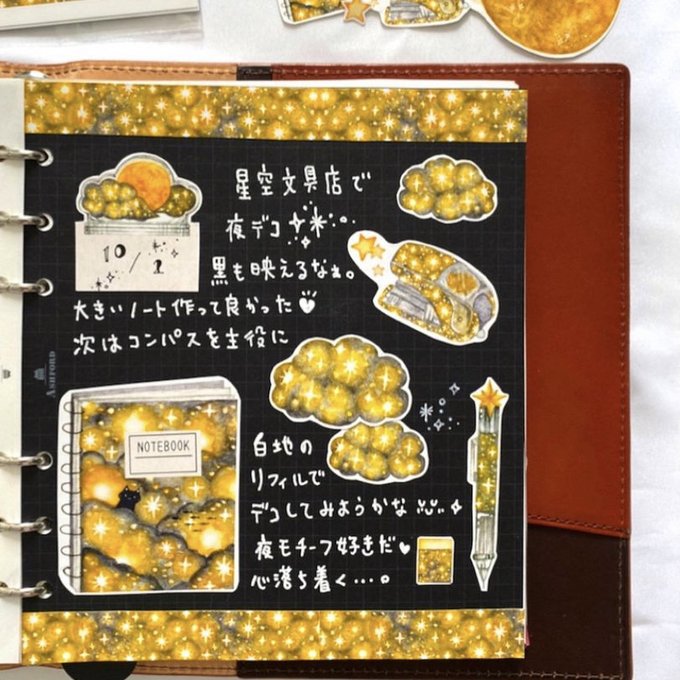 星空文具店で
夜デコ
10/2
黒も映えるなぁ。
大きいノート作って良かった
次はコンパスを主役に
ASHFORD
NOTEBOOK
白地の
リフィルで
デコしてみようかな
夜モチーフ好きだ
心落ち着く…。